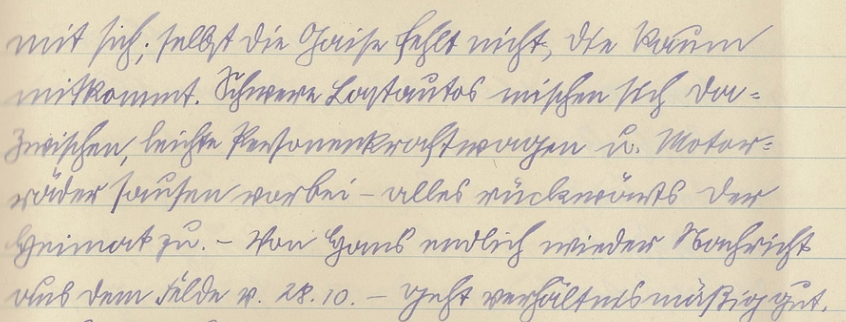 mit sich, selbst die Gaise fehlt nicht, die kaum
mitkommt. Schwere Lastautos mischen sich da=
zwischen, leichte Personenkraftwagen u. Motor=
räder sausen vorbei – alles rückwärts der
Heimat zu. – Von Hans endlich wieder Nachricht
aus dem Felde v. 28.10. – geht verhältnismäßig gut.